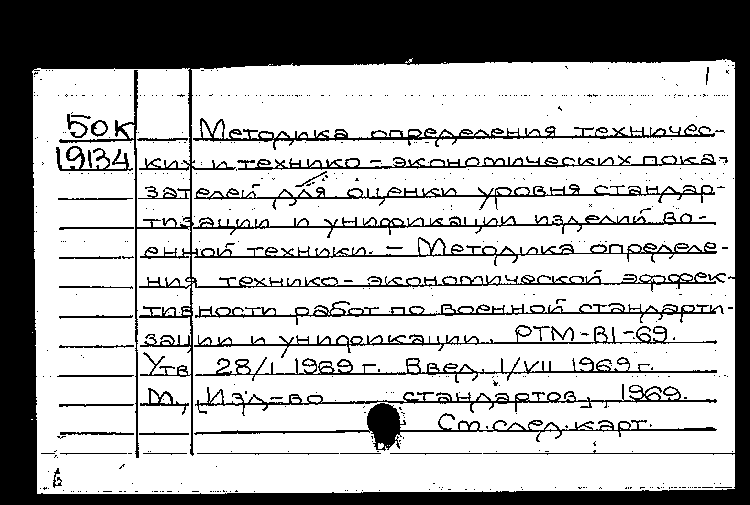 1
50к Методика определения техничес-
19134 ких и технико-экономических пока-
зателей для оценки уровня стандар-
тизации и унификации изделий во-
енной техники. - Методика определе-
ния технико-экономической эффек-
тивности работ по военной стандарти-
зации и унификации. РТМ-В1-69.
Утв 28/I 1969 г. Введ. 1/VII 1969 г.
М., [Изд-во стандартов], 1969.
См. след. карт.